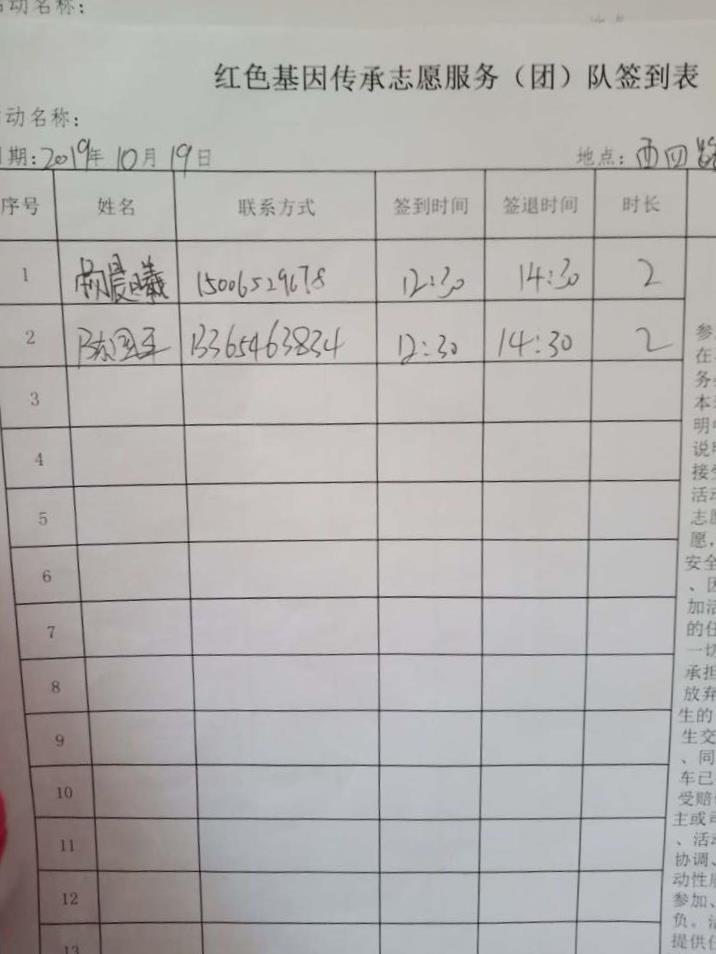 动名称:
红色基因传承志愿服务（团）队签到表
动名称:
期:2019年10月19日 地点:西四路
序号 姓名 联系方式 签到时间 签退时间 时长
1 晨曦 15006529678 12:30 14:30 2
2 陈 13365463834 12:30 14:30 2
3
4
5
6
7
8
9
10
11
12
13
参
在
务
本
明
说
接受
活动
志愿
愿，
安全
、因
加活
的任
一切
承担
放弃
生的
生交
、同
车已
受赔
主或司
、活动
协调、
动性
参加、
负。
提供任